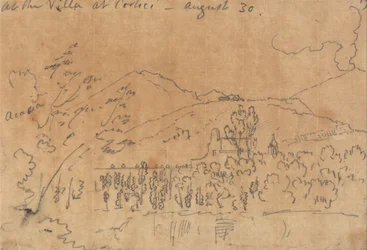 at the Villa at Portici – august 30.
acacia